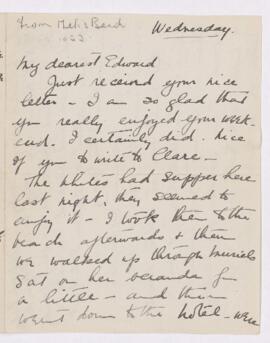 from Metis Beach
Wednesday.
My dearest Edward
Just received your nice
letter - I am so glad that
you really enjoyed your week-
end. I certainly did. nice
of you to write to Clare -
The Whites had supper here
last night, they seemed to
enjoy it - I took them to the
beach afterwards & then
we walked up through Muriels
sat on her veranda for
a little - and then
went down to the hotel - were